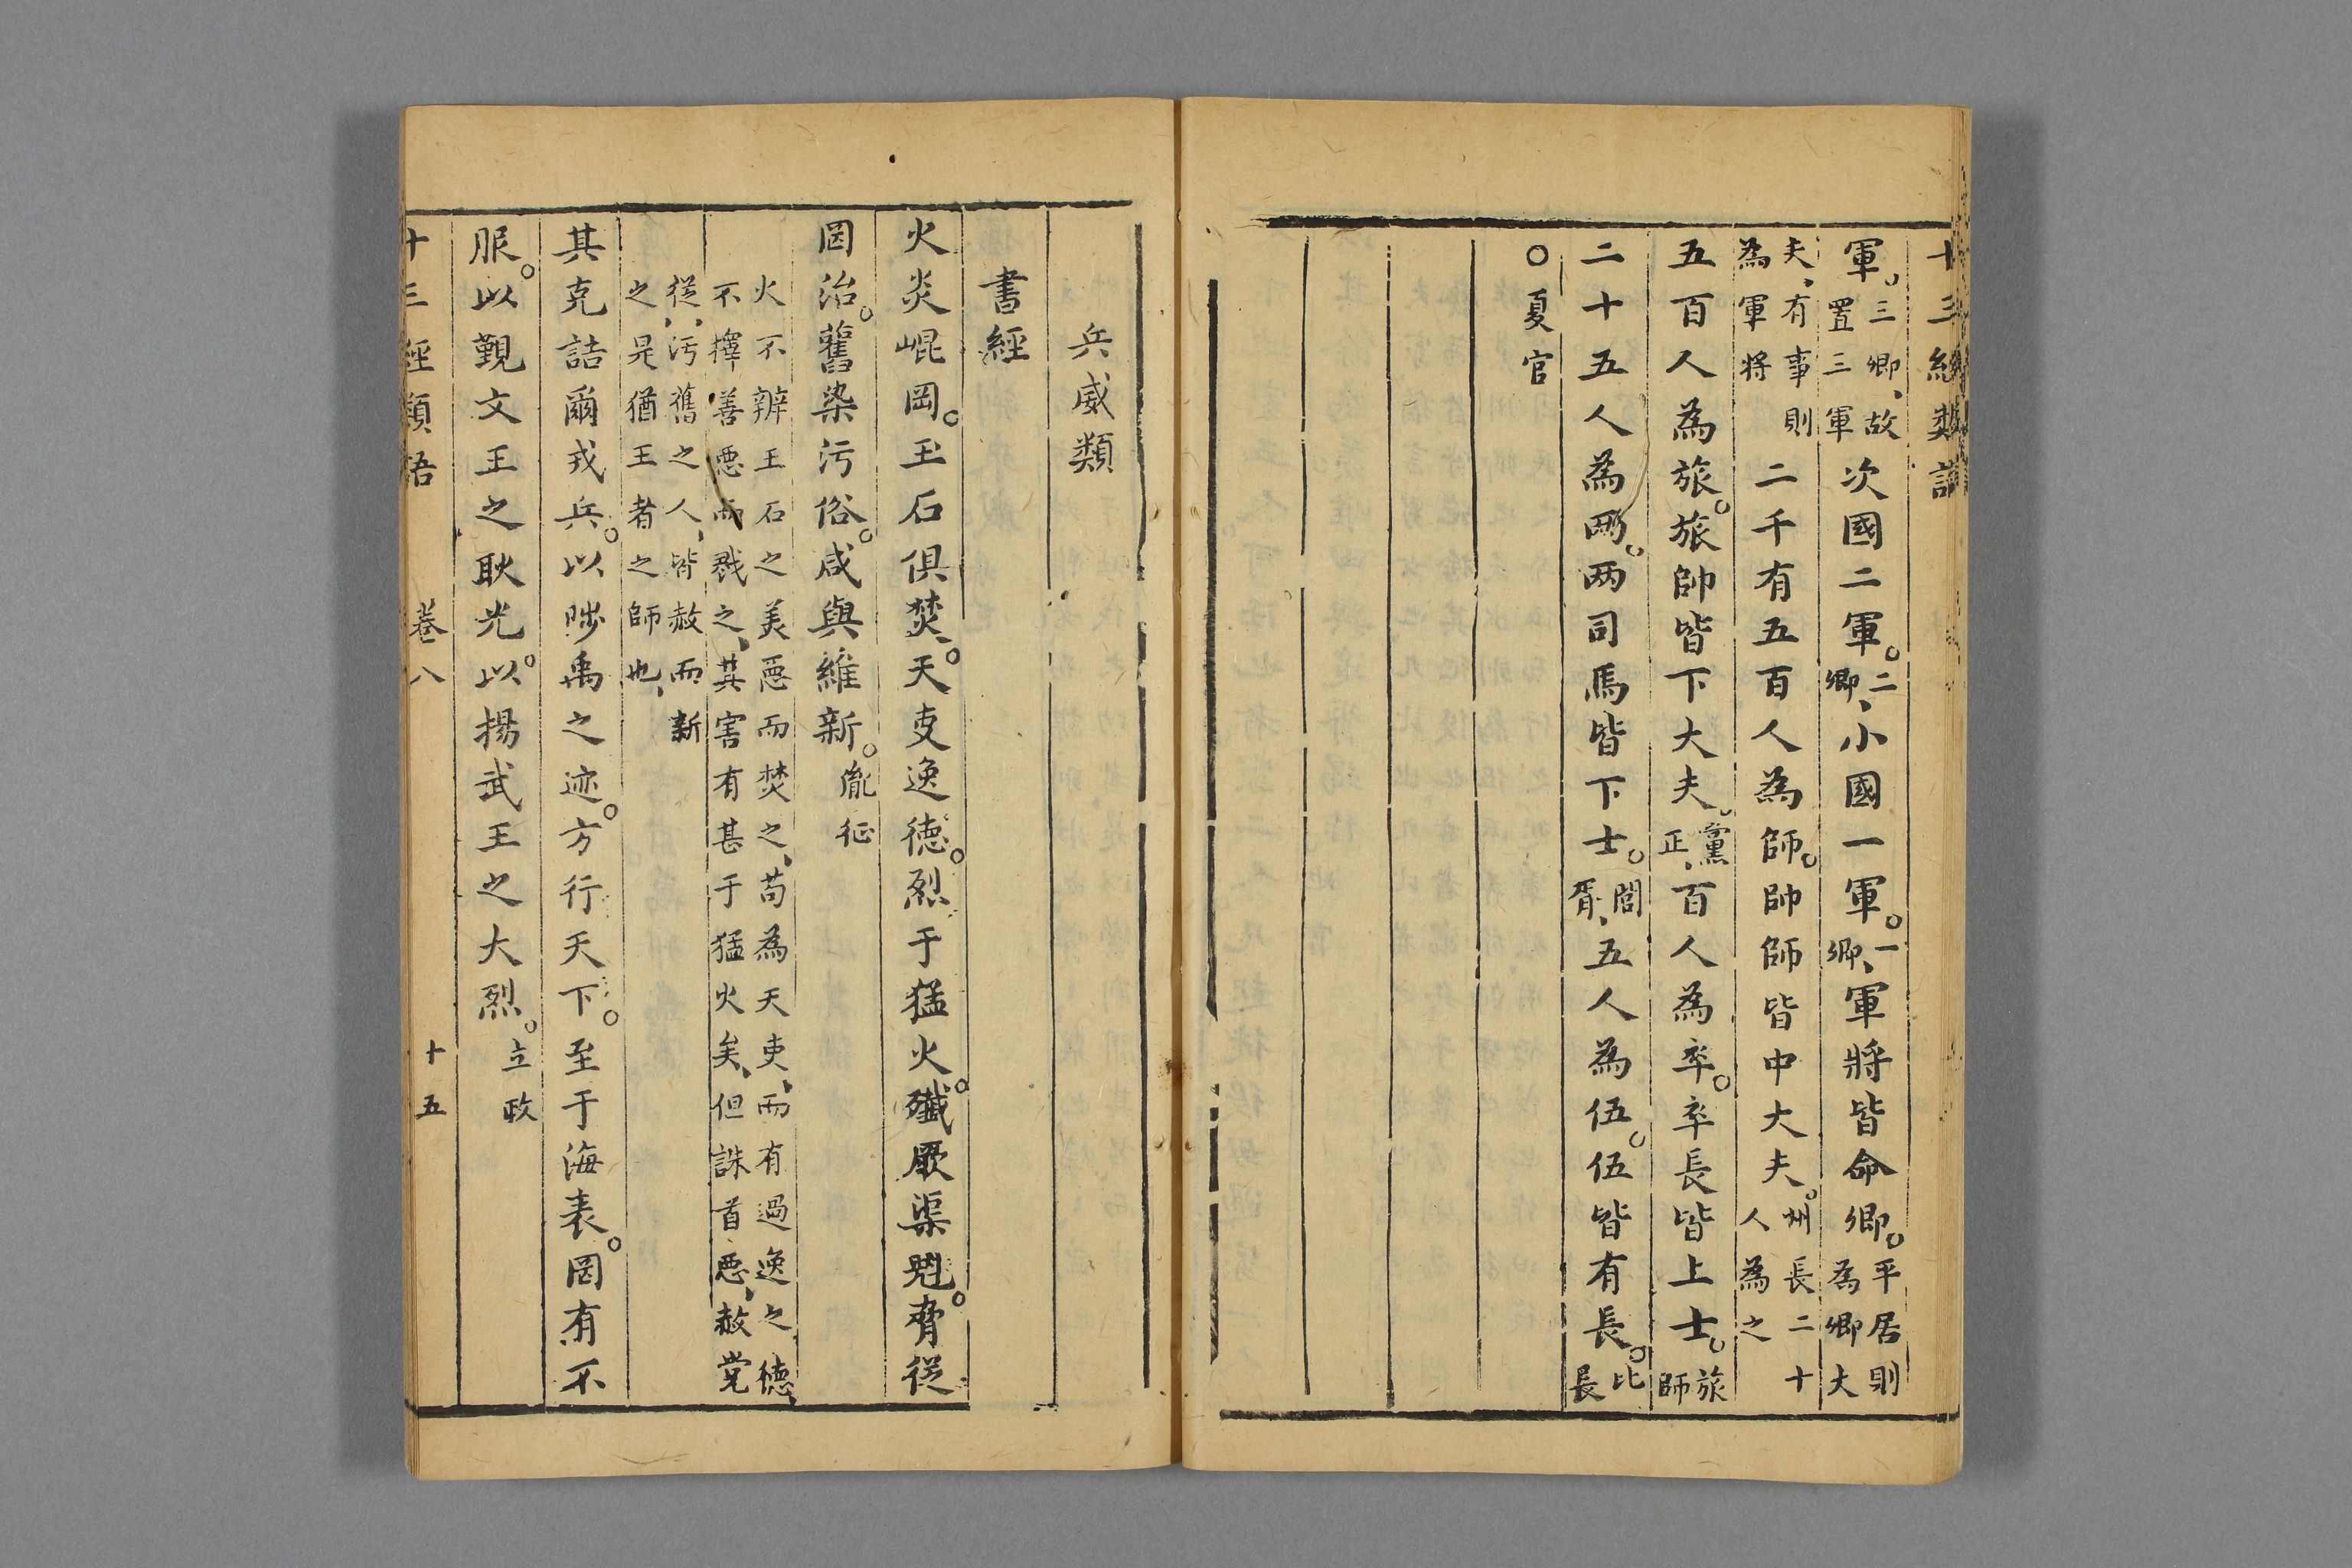 十三經類語
軍三卿故置三軍次國二軍二卿小國一軍一卿軍將皆命卿平居則為卿大
夫有事則為軍将二千有五百人為師師帥皆中大夫州長二十人為之
五百人為旅旅帥皆下大夫黨正百人為卒卒長皆上士旅師
二十五人為兩两司馬皆下士閭胥五人為伍伍皆有長比長
○夏官
兵威類
書經
火炎崐岡玉石俱焚天吏逸德烈于猛火殲厥渠魁脅從
罔治舊染污俗咸與維新胤征
火不辨玉石之美惡而焚之苟為天吏而有過逸之德
不擇善惡而戮之其害有甚于猛火矣但誅首惡赦党
從污舊之人皆赦而新
之是猶王者之師也
其克詰爾戎兵以陟禹之迹方行天下至于海表罔有不
服以觀文王之耿光以揚武王之大烈立政
十三經類語 卷八 十五